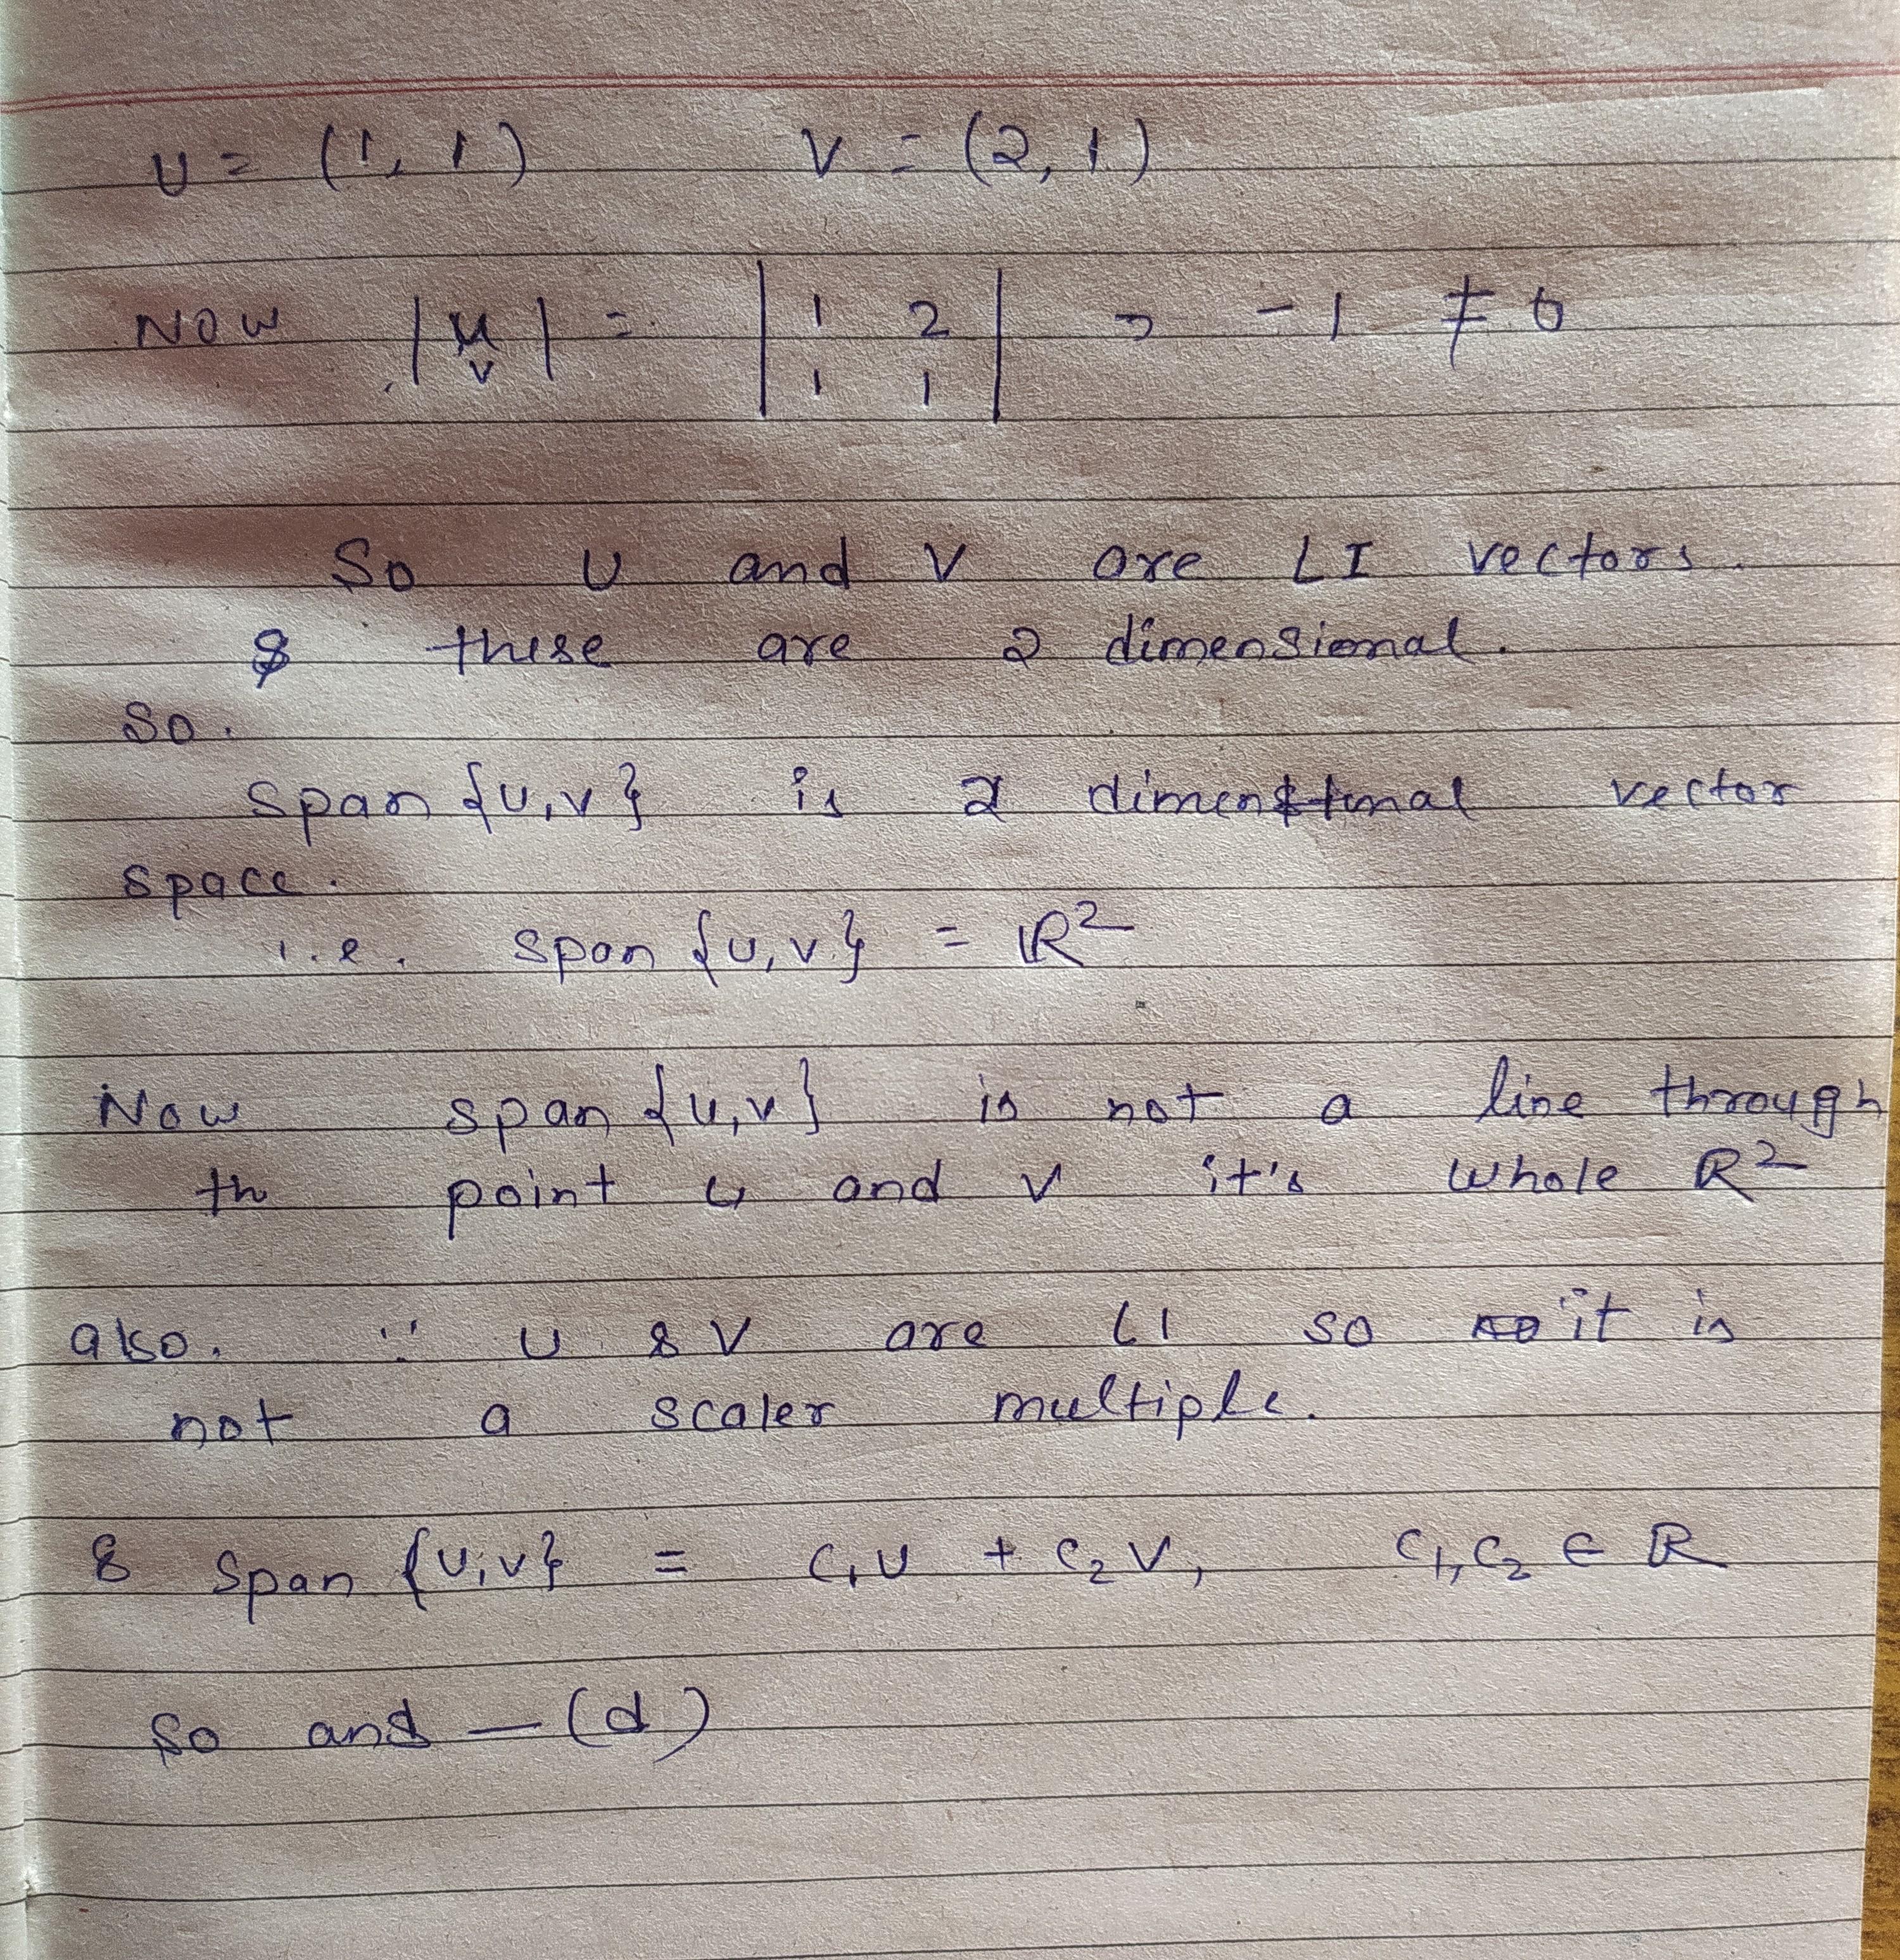 U = (1, 1) V = (2, 1)
Now |u| = | 1 2 | = -1 ≠ 0
v 1 1
So U and V are LI vectors.
& these are 2 dimensional.
So.
span {u,v} is 2 dimenstional vector
space.
i.e. span {u,v} = ℝ²
Now span {u,v} is not a line through
th point u and v it's whole ℝ²
also. ∵ U & V are LI so it is
not a scaler multiple.
& span {u,v} = C₁U + C₂V, C₁, C₂ ∈ ℝ
So ans — (d)